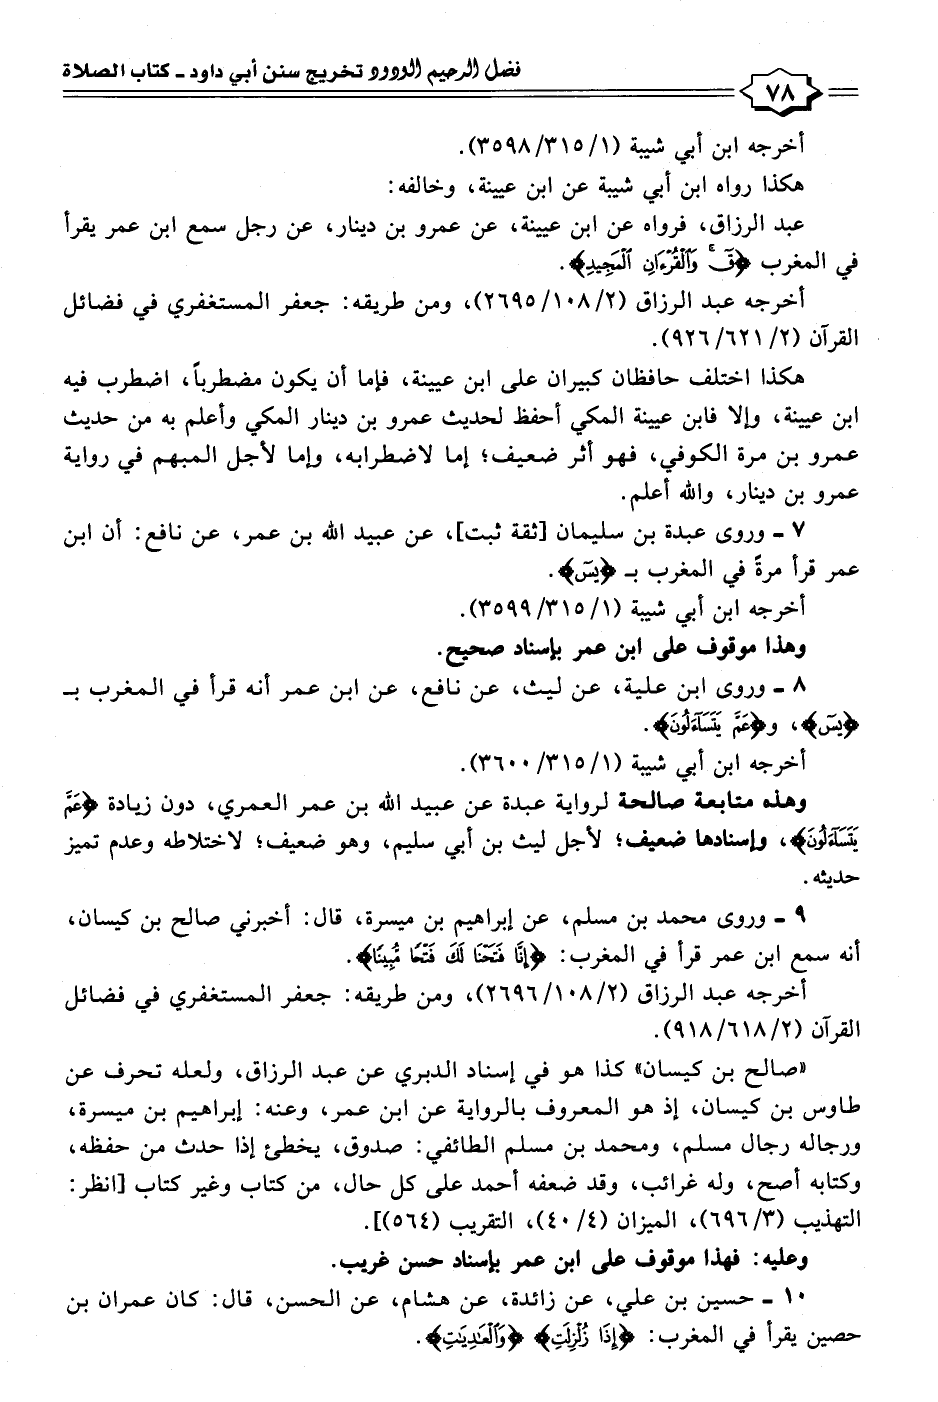 فضل الرحيم الودود تخريج سنن أبي داود ـ كتاب الصلاة
٧٨
أخرجه ابن أبي شيبة (٣٥٩٨/٣١٥/١).
هكذا رواه ابن أبي شيبة عن ابن عيينة، وخالفه:
عبد الرزاق، فرواه عن ابن عيينة، عن عمرو بن دينار، عن رجل سمع ابن عمر يقرأ
في المغرب ﴿قٓ وَالْقُرْءَانِ الْمَجِيدِ﴾.
أخرجه عبد الرزاق (٢٦٩٥/١٠٨/٢)، ومن طريقه: جعفر المستغفري في فضائل
القرآن (٩٢٦/٦٢١/٢).
هكذا اختلف حافظان كبيران على ابن عيينة، فإما أن يكون مضطرباً، اضطرب فيه
ابن عيينة، وإلا فابن عيينة المكي أحفظ لحديث عمرو بن دينار المكي وأعلم به من حديث
عمرو بن مرة الكوفي، فهو أثر ضعيف؛ إما لاضطرابه، وإما لأجل المبهم في رواية
عمرو بن دينار، والله أعلم.
٧ ـ وروى عبدة بن سليمان [ثقة ثبت]، عن عبيد الله بن عمر، عن نافع: أن ابن
عمر قرأ مرةً في المغرب بـ ﴿يسٓ﴾.
أخرجه ابن أبي شيبة (٣٥٩٩/٣١٥/١).
وهذا موقوف على ابن عمر بإسناد صحيح.
٨ ـ وروى ابن علية، عن ليث، عن نافع، عن ابن عمر أنه قرأ في المغرب بـ
﴿يسٓ﴾، و﴿عَمَّ يَتَسَآءَلُونَ﴾.
أخرجه ابن أبي شيبة (٣٦٠٠/٣١٥/١).
وهذه متابعة صالحة لرواية عبدة عن عبيد الله بن عمر العمري، دون زيادة ﴿عَمَّ
يَتَسَآءَلُونَ﴾، وإسنادها ضعيف؛ لأجل ليث بن أبي سليم، وهو ضعيف؛ لاختلاطه وعدم تميز
حديثه.
٩ ـ وروى محمد بن مسلم، عن إبراهيم بن ميسرة، قال: أخبرني صالح بن كيسان،
أنه سمع ابن عمر قرأ في المغرب: ﴿إِنَّا فَتَحْنَا لَكَ فَتْحًا مُّبِينًا﴾.
أخرجه عبد الرزاق (٢٦٩٦/١٠٨/٢)، ومن طريقه: جعفر المستغفري في فضائل
القرآن (٩١٨/٦١٨/٢).
«صالح بن كيسان» كذا هو في إسناد الدبري عن عبد الرزاق، ولعله تحرف عن
طاوس بن كيسان، إذ هو المعروف بالرواية عن ابن عمر، وعنه: إبراهيم بن ميسرة،
ورجاله رجال مسلم، ومحمد بن مسلم الطائفي: صدوق، يخطئ إذا حدث من حفظه،
وكتابه أصح، وله غرائب، وقد ضعفه أحمد على كل حال، من كتاب وغير كتاب [انظر:
التهذيب (٦٩٦/٣)، الميزان (٤٠/٤)، التقريب (٥٦٤)].
وعليه: فهذا موقوف على ابن عمر بإسناد حسن غريب.
١٠ ـ حسين بن علي، عن زائدة، عن هشام، عن الحسن، قال: كان عمران بن
حصين يقرأ في المغرب: ﴿إِذَا زُلْزِلَتِ﴾ ﴿وَالْعَادِيَاتِ﴾.